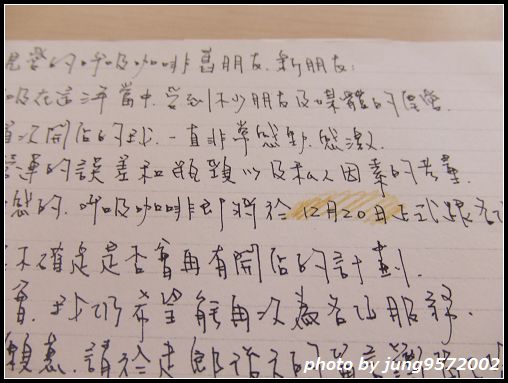 愛的呼吸咖啡舊朋友.新朋友:
吸在這三年當中.受到不少朋友及媒體的厚愛.
首次開店的我.一直非常感動.感激.
的誤差和瓶頸以及私人因素的考量
感的.呼吸咖啡即將於12月20日正式跟各位
不確定是否會再有開店的計劃.
會.我仍希望能再次為各位服務.
願意 請於
photo by jung9572002